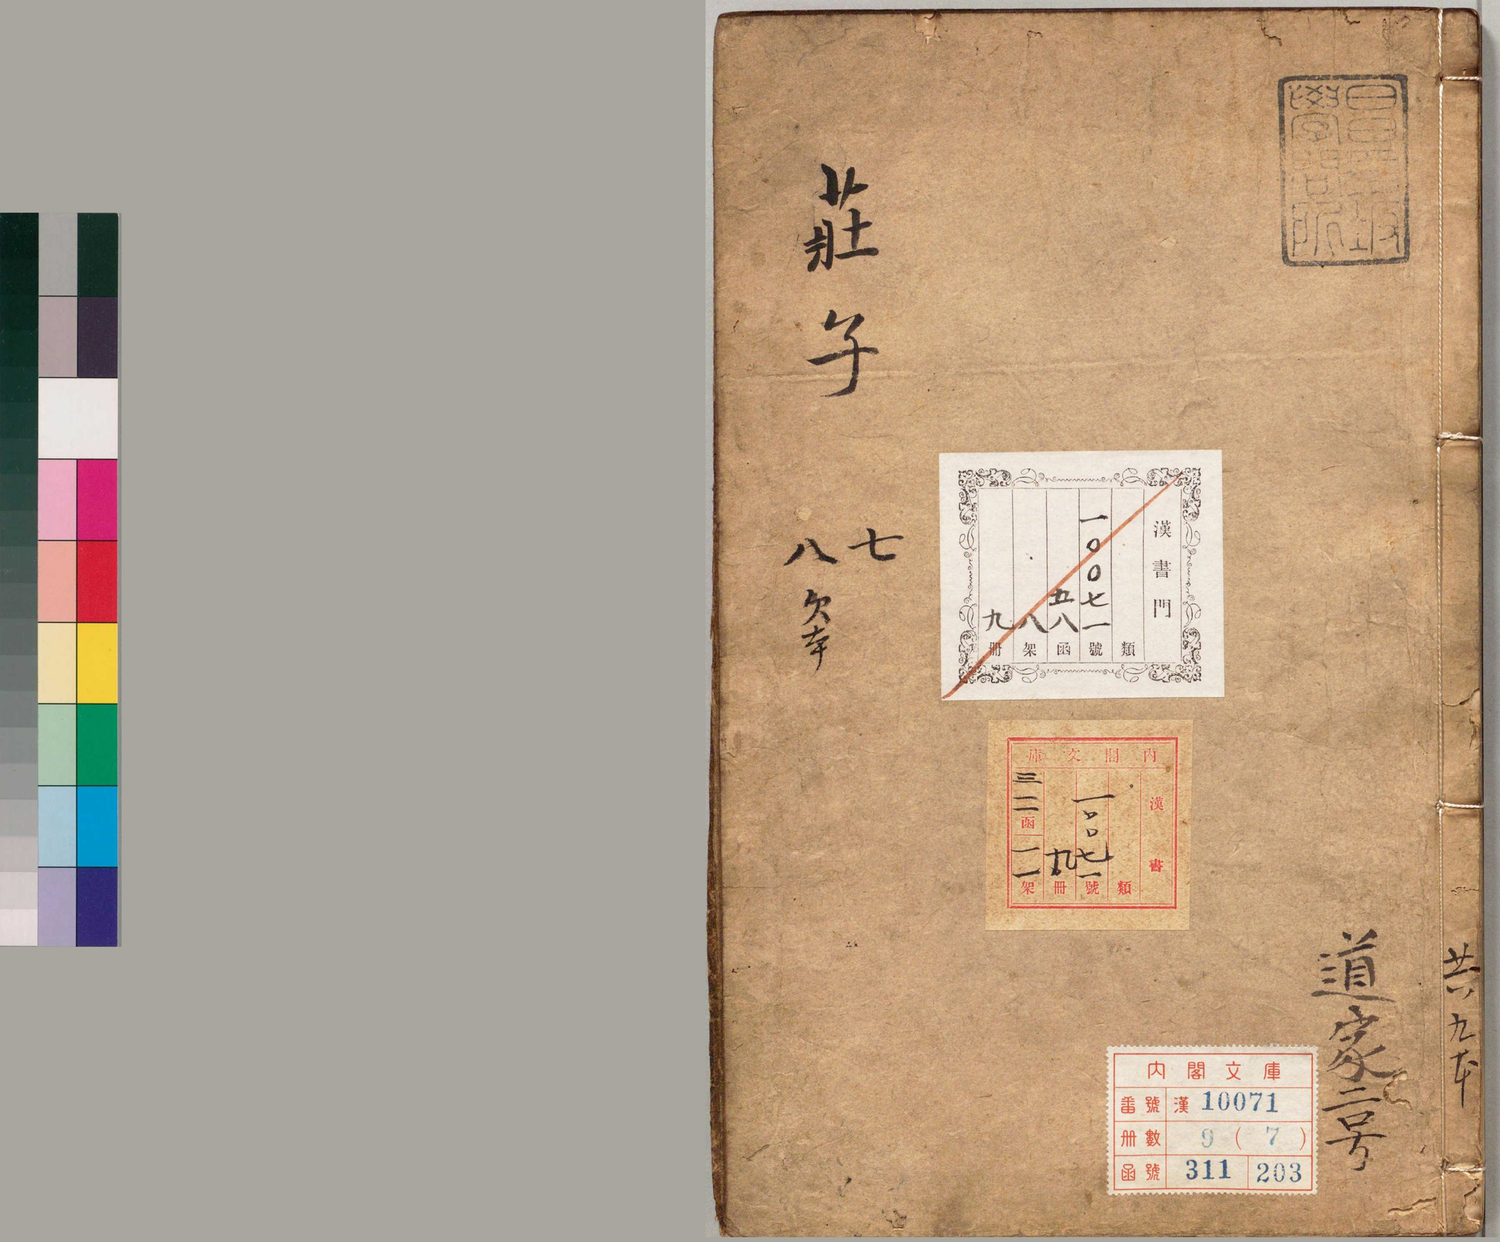 昌平坂
學問所
莊子
七
八欠本
漢書門
類
一〇〇七一號
五八函
八架
九冊
內閣文庫
漢書
類
一〇〇七一號
九冊
三一二函
一一架
道家二号
共九本
內閣文庫
番號 漢 10071
冊數 9 ( 7 )
函號 311 203